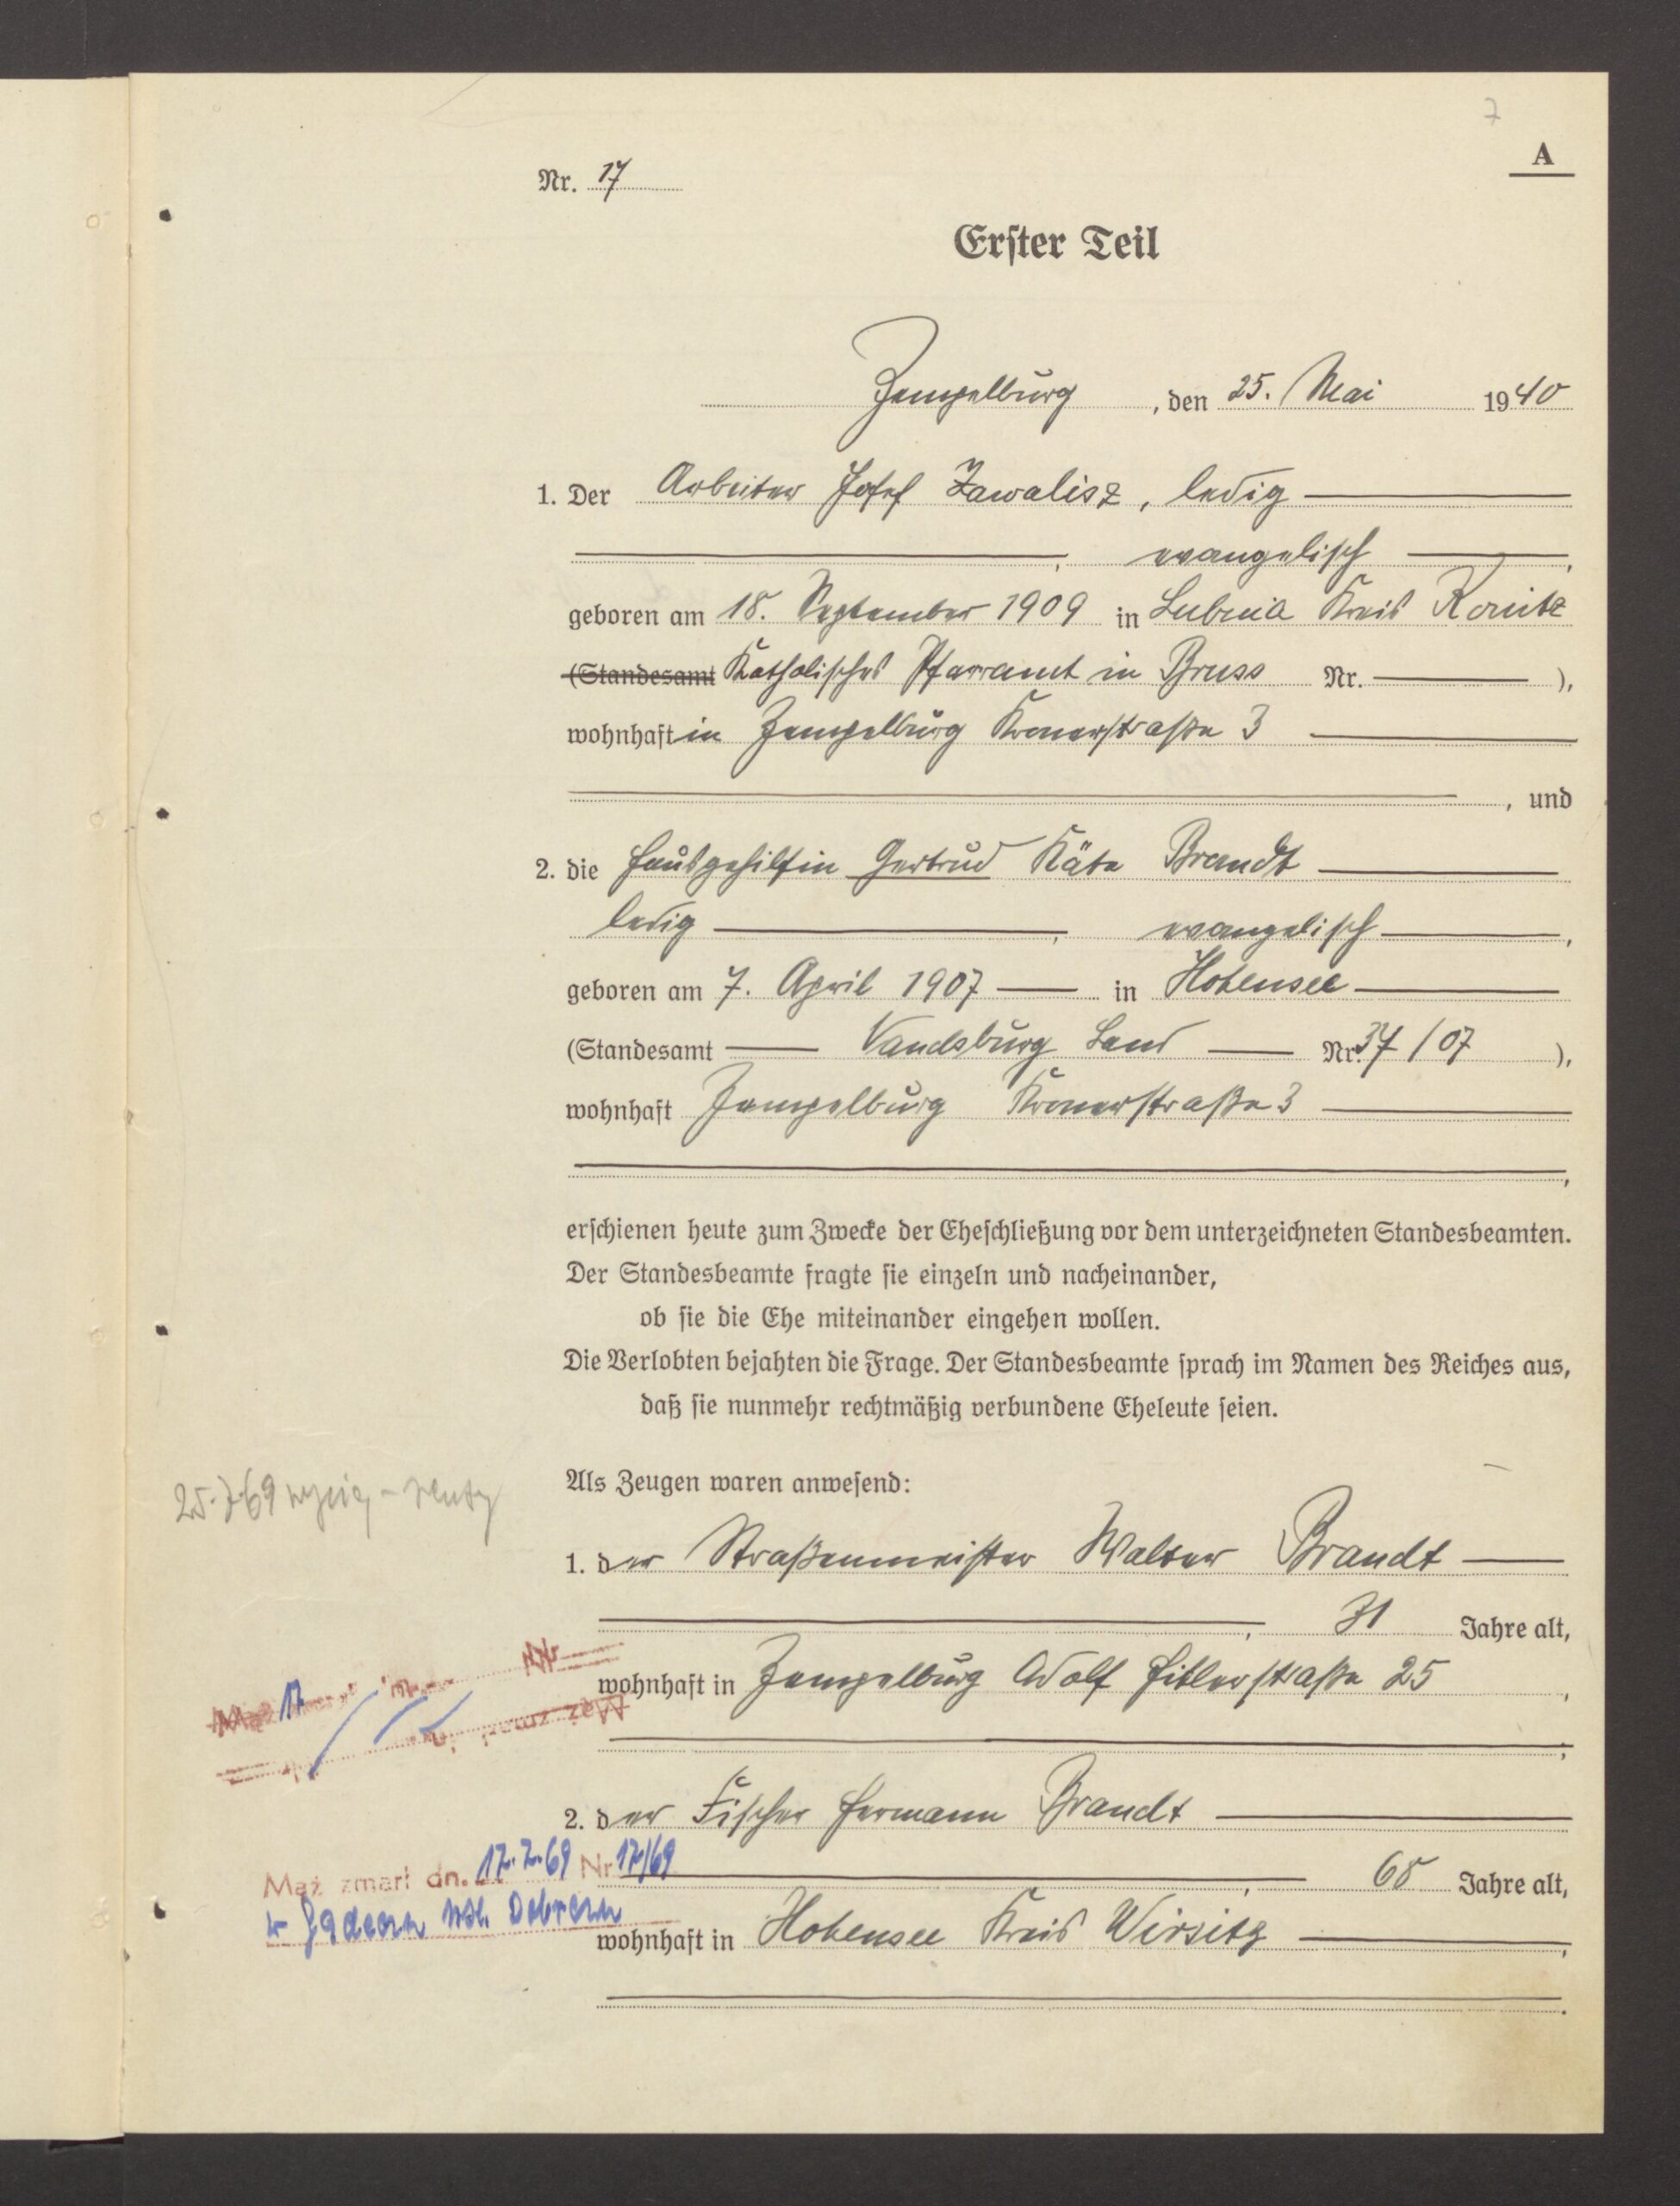 7
A
Nr. 17
Erster Teil
Zempelburg, den 25. Mai 1940
1. Der Arbeiter Josef Zawalisz, ledig
evangelisch,
geboren am 18. September 1909 in Lubnia Kreis Konitz
(Standesamt Katholisches Pfarramt in Bruss Nr. ),
wohnhaft in Zempelburg Kronerstraße 3
, und
2. die Hausgehilfin Gertrud Käte Brandt
ledig, evangelisch,
geboren am 7. April 1907 in Hohensee
(Standesamt Vandsburg Land Nr. 37/07 ),
wohnhaft Zempelburg Kronerstraße 3
,
erschienen heute zum Zwecke der Eheschließung vor dem unterzeichneten Standesbeamten.
Der Standesbeamte fragte sie einzeln und nacheinander,
ob sie die Ehe miteinander eingehen wollen.
Die Verlobten bejahten die Frage. Der Standesbeamte sprach im Namen des Reiches aus,
daß sie nunmehr rechtmäßig verbundene Eheleute seien.
Als Zeugen waren anwesend:
25.7.69
1. der Straßenmeister Walter Brandt
, 31 Jahre alt,
wohnhaft in Zempelburg Adolf Hitlerstraße 25,
;
2. der Fischer Hermann Brandt
, 68 Jahre alt,
Mąż zmarł dn. 17.7.69 Nr 17/69
wohnhaft in Hohensee Kreis Wirsitz,
.